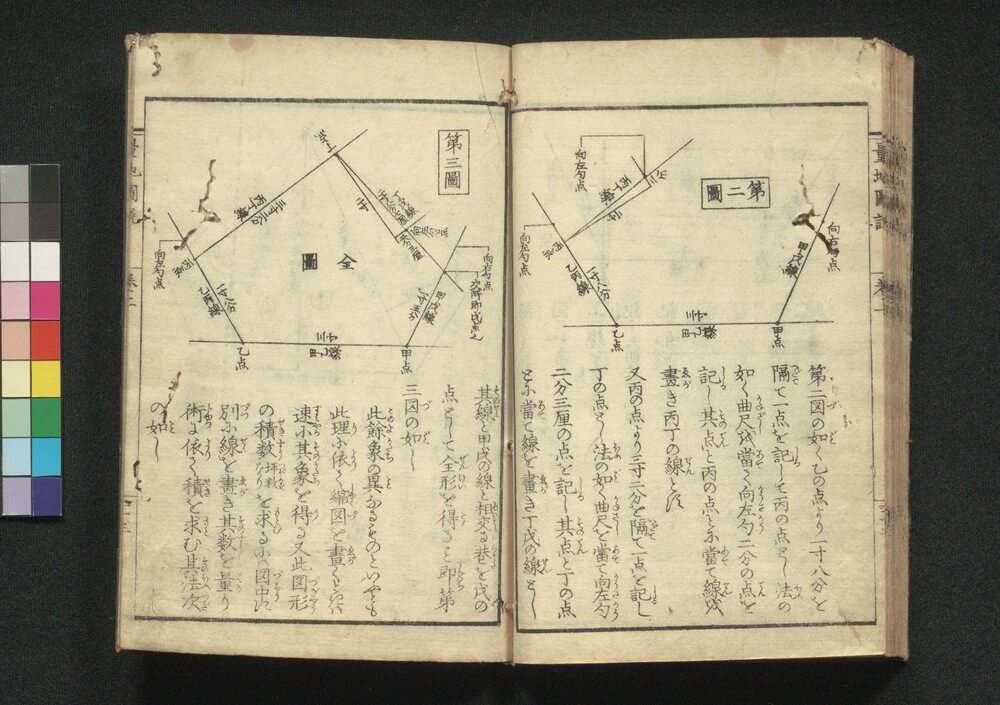 第二圖
向左勾点
丙丁線
丙点
向左勾点
一寸八分
乙丙線
乙点
甲点
甲戊線
向右勾点
第二図の如く乙の点より一寸八分を
隔て一点を記して丙の点とし法の
如く曲尺を當て向左勾二分の点を
記し其点と丙の点とに當て線を
畫き丙丁の線とす
又丙の点より三寸二分を隔て一点を記し
丁の点とし法の如く曲尺を當て向左勾
二分三厘の点を記し其点と丁の点
とに當て線を畫き丁戊の線とし
第三圖
全圖
丙丁線
三寸二分
丙点
向左勾点
一寸八分
乙丙線
乙点
甲点
甲戊線
向右勾点
交所即戊点也
其線と甲戊の線と相交る巷を戊の
点として全形を得ると即第
三図の如し
此餘象の異なるものといへども
此理に依て縮図を畫くときハ
速に其象を得る又此図形
の積数坪数なりを求るに図中に
別に線を畫き其数を量り
術に依て積を求む其法次
の如し
量地圖説